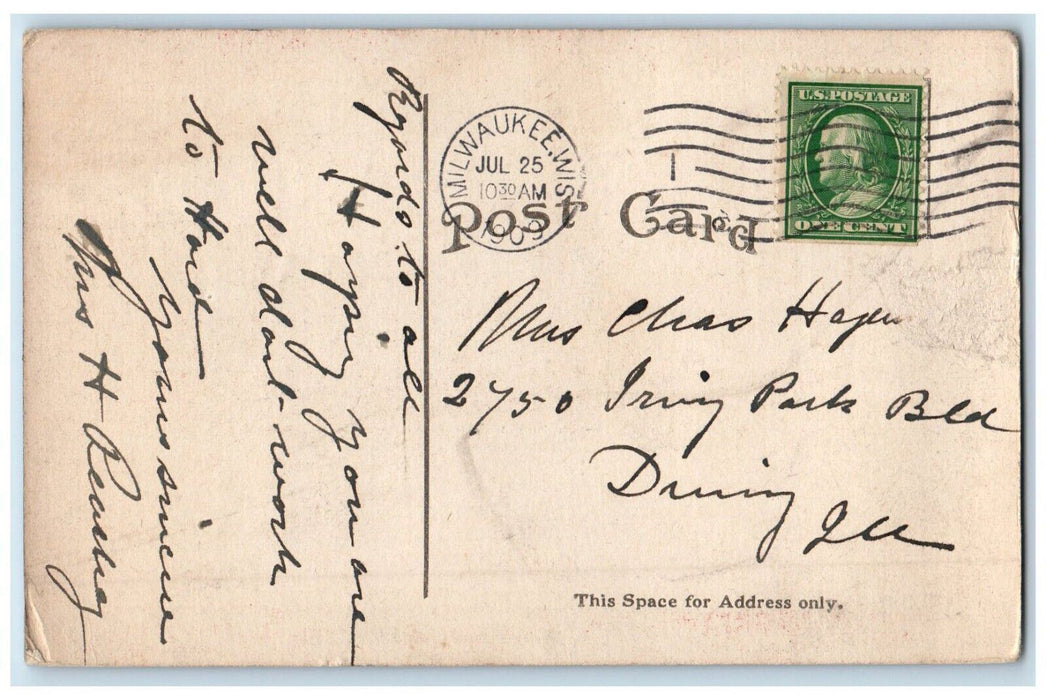 Regards to all
Hoping you are
well dont work
to Hard
Yours sincere
Mrs H
MILWAUKEE, WIS.
JUL 25
10 30 AM
1909
1
U.S. POSTAGE
ONE CENT
Post Card
Mrs Chas Hagen
2750 Irving Park Bld
Dunning
Ill
This Space for Address only.